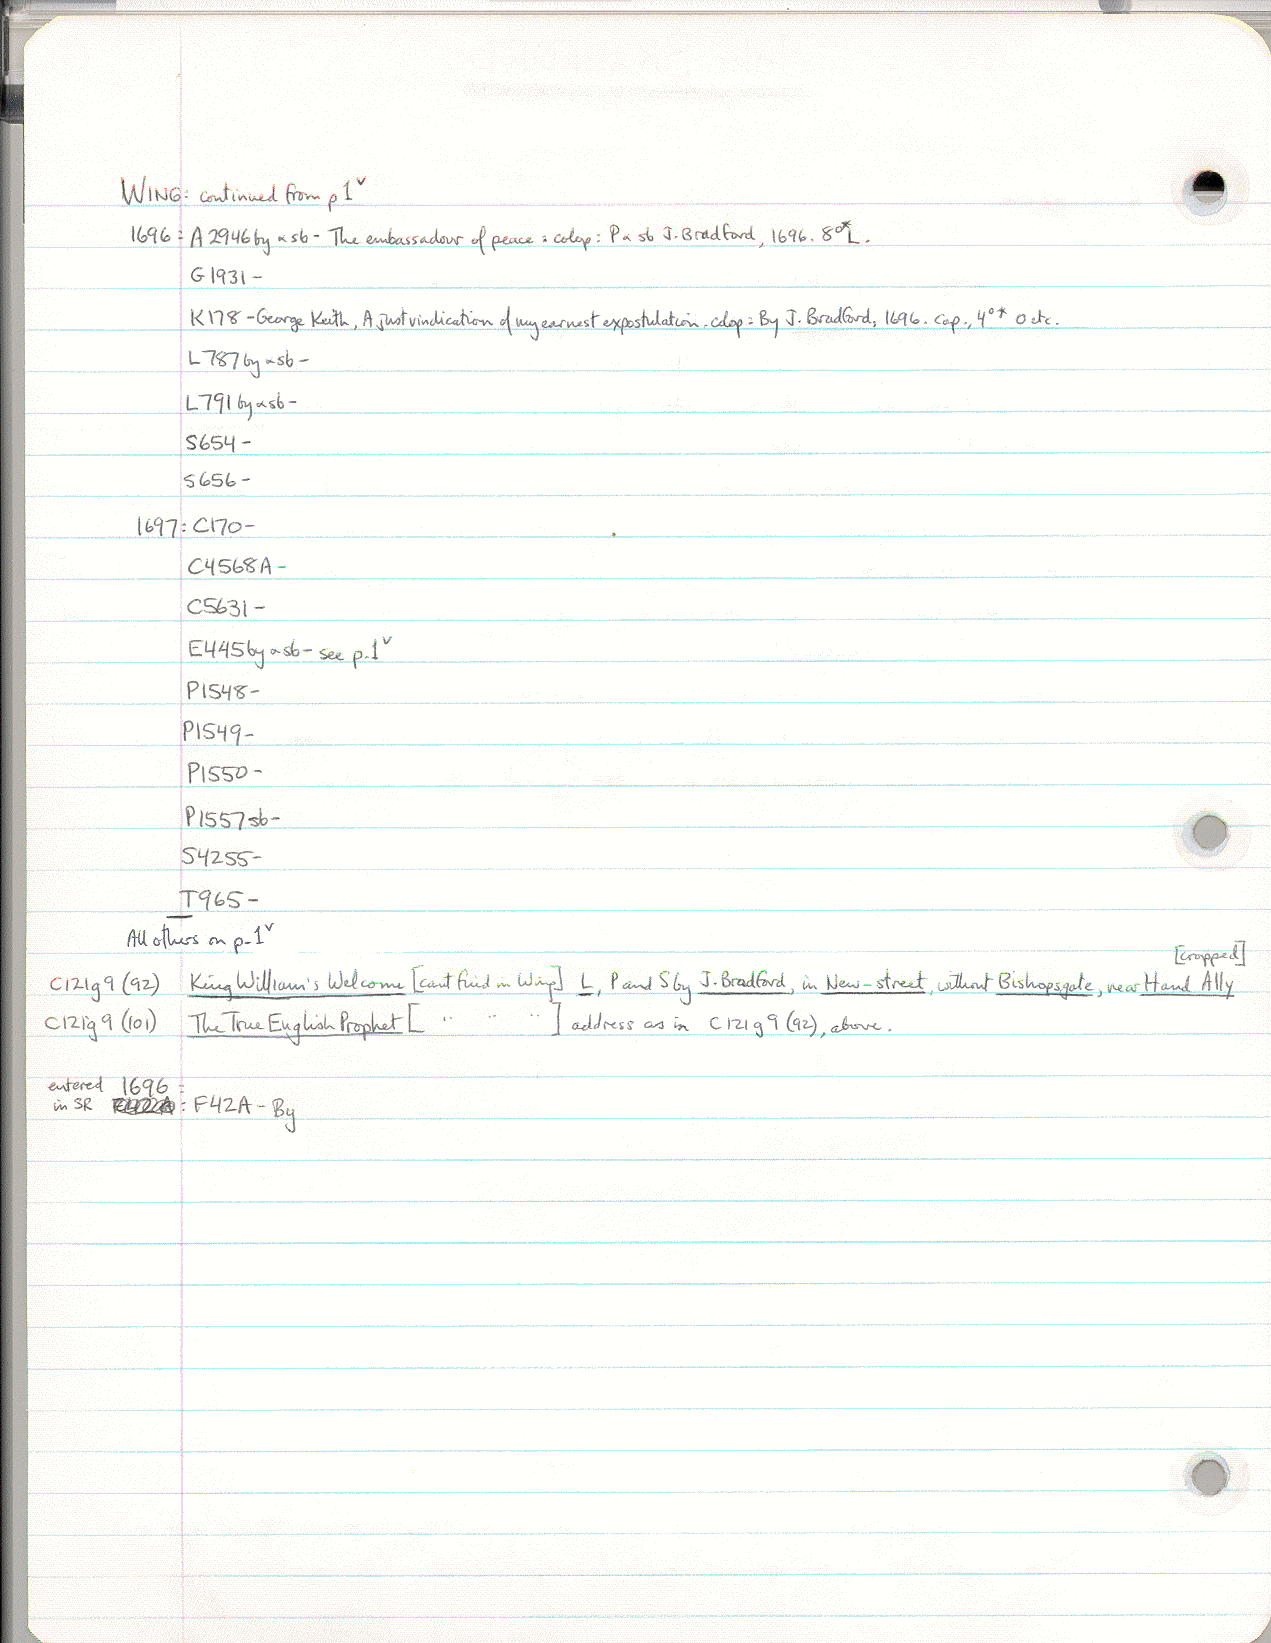 WING: continued from p 1ᵛ
1696: A2946 by & sb - The embassadour of peace : colop: P & sb J. Bradford, 1696. 8°* L.
G1931 -
K178 - George Keith, A just vindication of my earnest expostulation. colop: By J. Bradford, 1696. cap., 4°* O etc.
L787 by & sb -
L791 by & sb -
S654 -
S656 -
1697: C170 -
C4568A -
C5631 -
E445 by & sb - see p. 1ᵛ
P1548 -
P1549 -
P1550 -
P1557 sb -
S4255 -
T965 -
All others on p. 1ᵛ
[cropped]
C121g9 (92) King William's Welcome [cant find in Wing] L, P and S by J. Bradford, in New-street, without Bishopsgate, near Hand Ally
C121g9 (101) The True English Prophet [ " " " ] address as in C121g9 (92), above.
entered 1696 :
in SR : F42A - By